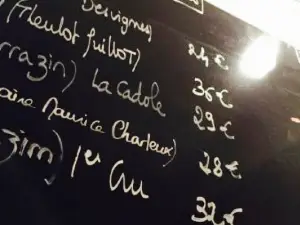 Desvignes)
(Meulot Guillot) 24 €
razin) La cadole 36 €
29 €
aire Maurice Charleux) 28 €
zim) 1er Cru 32 €